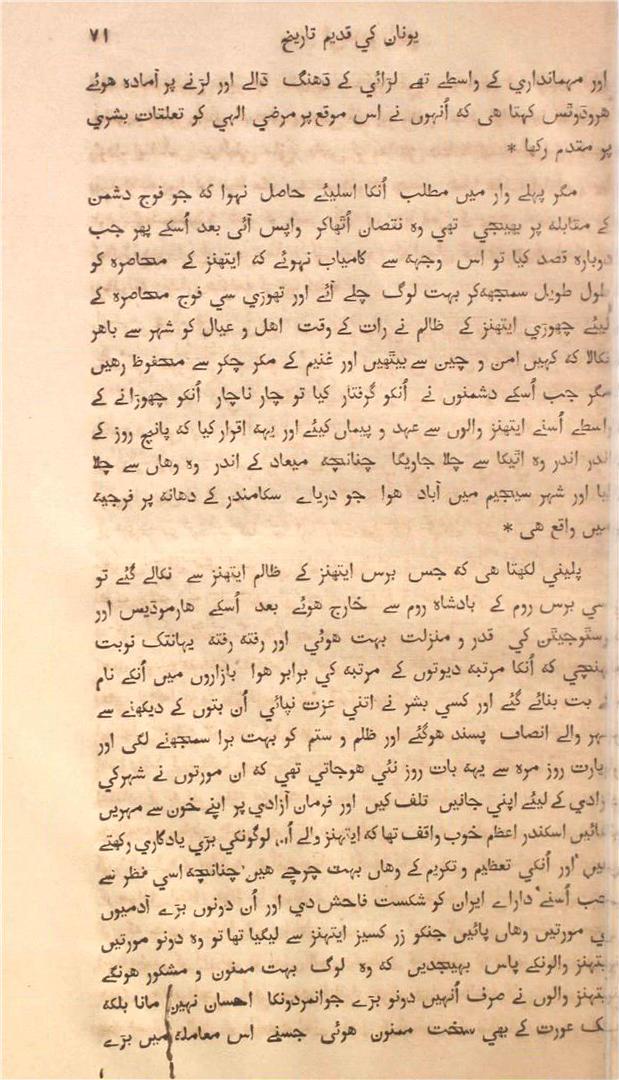 یونان کي قدیم تاریخ ۷۱
اور مہمانداري کے واسطے تھے لڑائي کے ڈھنگ ڈالے اور لڑنے پر آمادہ هوئے
هروڈوٹس کہتا هی که اُنہوں نے اس موقع پر مرضي الہي کو تعلقات بشري
پر مقدم رکھا *
مگر پہلے وار میں مطلب اُنکا اسلیئے حاصل نہوا که جو فوج دشمن
کے مقابله پر بھیجي تھي وہ نقصان اُٹھاکر واپس آئی بعد اُسکے پھر جب
دوبارہ قصد کیا تو اس وجهه سے کامیاب نہوئے که ایتھنز کے محاصرہ کو
طول طویل سمجھه‌کر بہت لوگ چلے آئے اور تھوڑي سي فوج محاصرہ کے
لیئے چھوڑي ایتھنز کے ظالم نے رات کے وقت اهل و عیال کو شہر سے باهر
نکالا که کہیں امن و چین سے بیٹھیں اور غنیم کے مکر چکر سے محفوظ رهیں
مگر جب اُسکے دشمنوں نے اُنکو گرفتار کیا تو چار ناچار اُنکو چھوڑانے کے
واسطے اُسنے ایتھنز والوں سے عہد و پیماں کیئے اور یہه اقرار کیا که پانچ روز کے
اندر اندر وہ اٹیکا سے چلا جاویگا چنانچه میعاد کے اندر وہ وهاں سے چلا
گیا اور شہر سیجیم میں آباد هوا جو دریاے سکامندر کے دهانه پر فرجیه
میں واقع هی *
پلیني لکھتا هی که جس برس ایتھنز کے ظالم ایتھنز سے نکالے گئے تو
سي برس روم کے بادشاہ روم سے خارج هوئے بعد اُسکے هارموڈیس اور
رسٹوجیٹن کي قدر و منزلت بہت هوئي اور رفته رفته یہانتک نوبت
پہنچي که اُنکا مرتبه دیوتوں کے مرتبه کي برابر هوا بازاروں میں اُنکے نام
کے بت بنائے گئے اور کسي بشر نے اتني عزت نپائي اُن بتوں کے دیکھنے سے
شہر والے انصاف پسند هوگئے اور ظلم و ستم کو بہت برا سمجھنے لگی اور
یارت روز مرہ سے یہه بات روز نئي هوجاتي تھي که ان مورتوں نے شہرکي
زادي کے لیئے اپني جانیں تلف کیں اور فرمان آزادي پر اپنے خون سے مہریں
لگائیں اسکندر اعظم خوب واقف تھا که ایتھنز والے اُن لوگونکي بڑي یادگاري رکھتے
هیں اور اُنکي تعظیم و تکریم کے وهاں بہت چرچے هیں چنانچه اسي نظر سے
جب اُسنے داراے ایران کو شکست فاحش دي اور اُن دونوں بڑے آدمیوں
کي مورتیں وهاں پائیں جنکو زر کسیز ایتھنز سے لیگیا تھا تو وہ دونو مورتیں
یتھنز والونکے پاس بھیجدیں که وہ لوگ بہت ممنون و مشکور هونگے
یتھنز والوں نے صرف اُنہیں دونو بڑے جوانمردونکا احسان نہیں مانا بلکه
یک عورت کے بھي سخت ممنون هوئی جسنے اس معامله میں بڑے